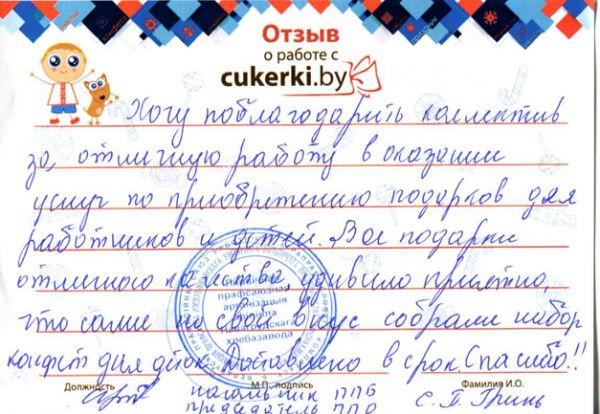 Отзыв
о работе с
cukerki.by
Хочу поблагодарить коллектив
за, отличную работу в оказании
услуг по приобретению подарков для
работников и детей. Все подарки
отличного качества, удивило приятно,
что сами на свой вкус собрали набор
конфет для деток. Доставлено в срок. Спасибо!!
прафсаюзная
арганізацыя
хлебазавода
Должность М.П., подпись Фамилия И.О.
начальник ППБ
председатель ППО С. Т. Гринь